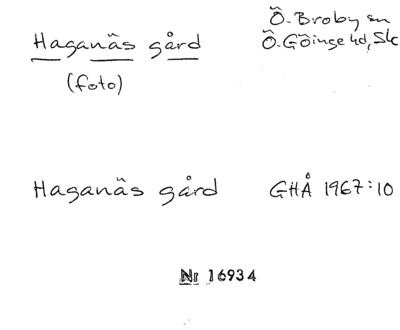 Haganäs gård
Ö. Broby sn
Ö. Göinge hd, Sk
(foto)
Haganäs gård GHÅ 1967:10
Nr 16934